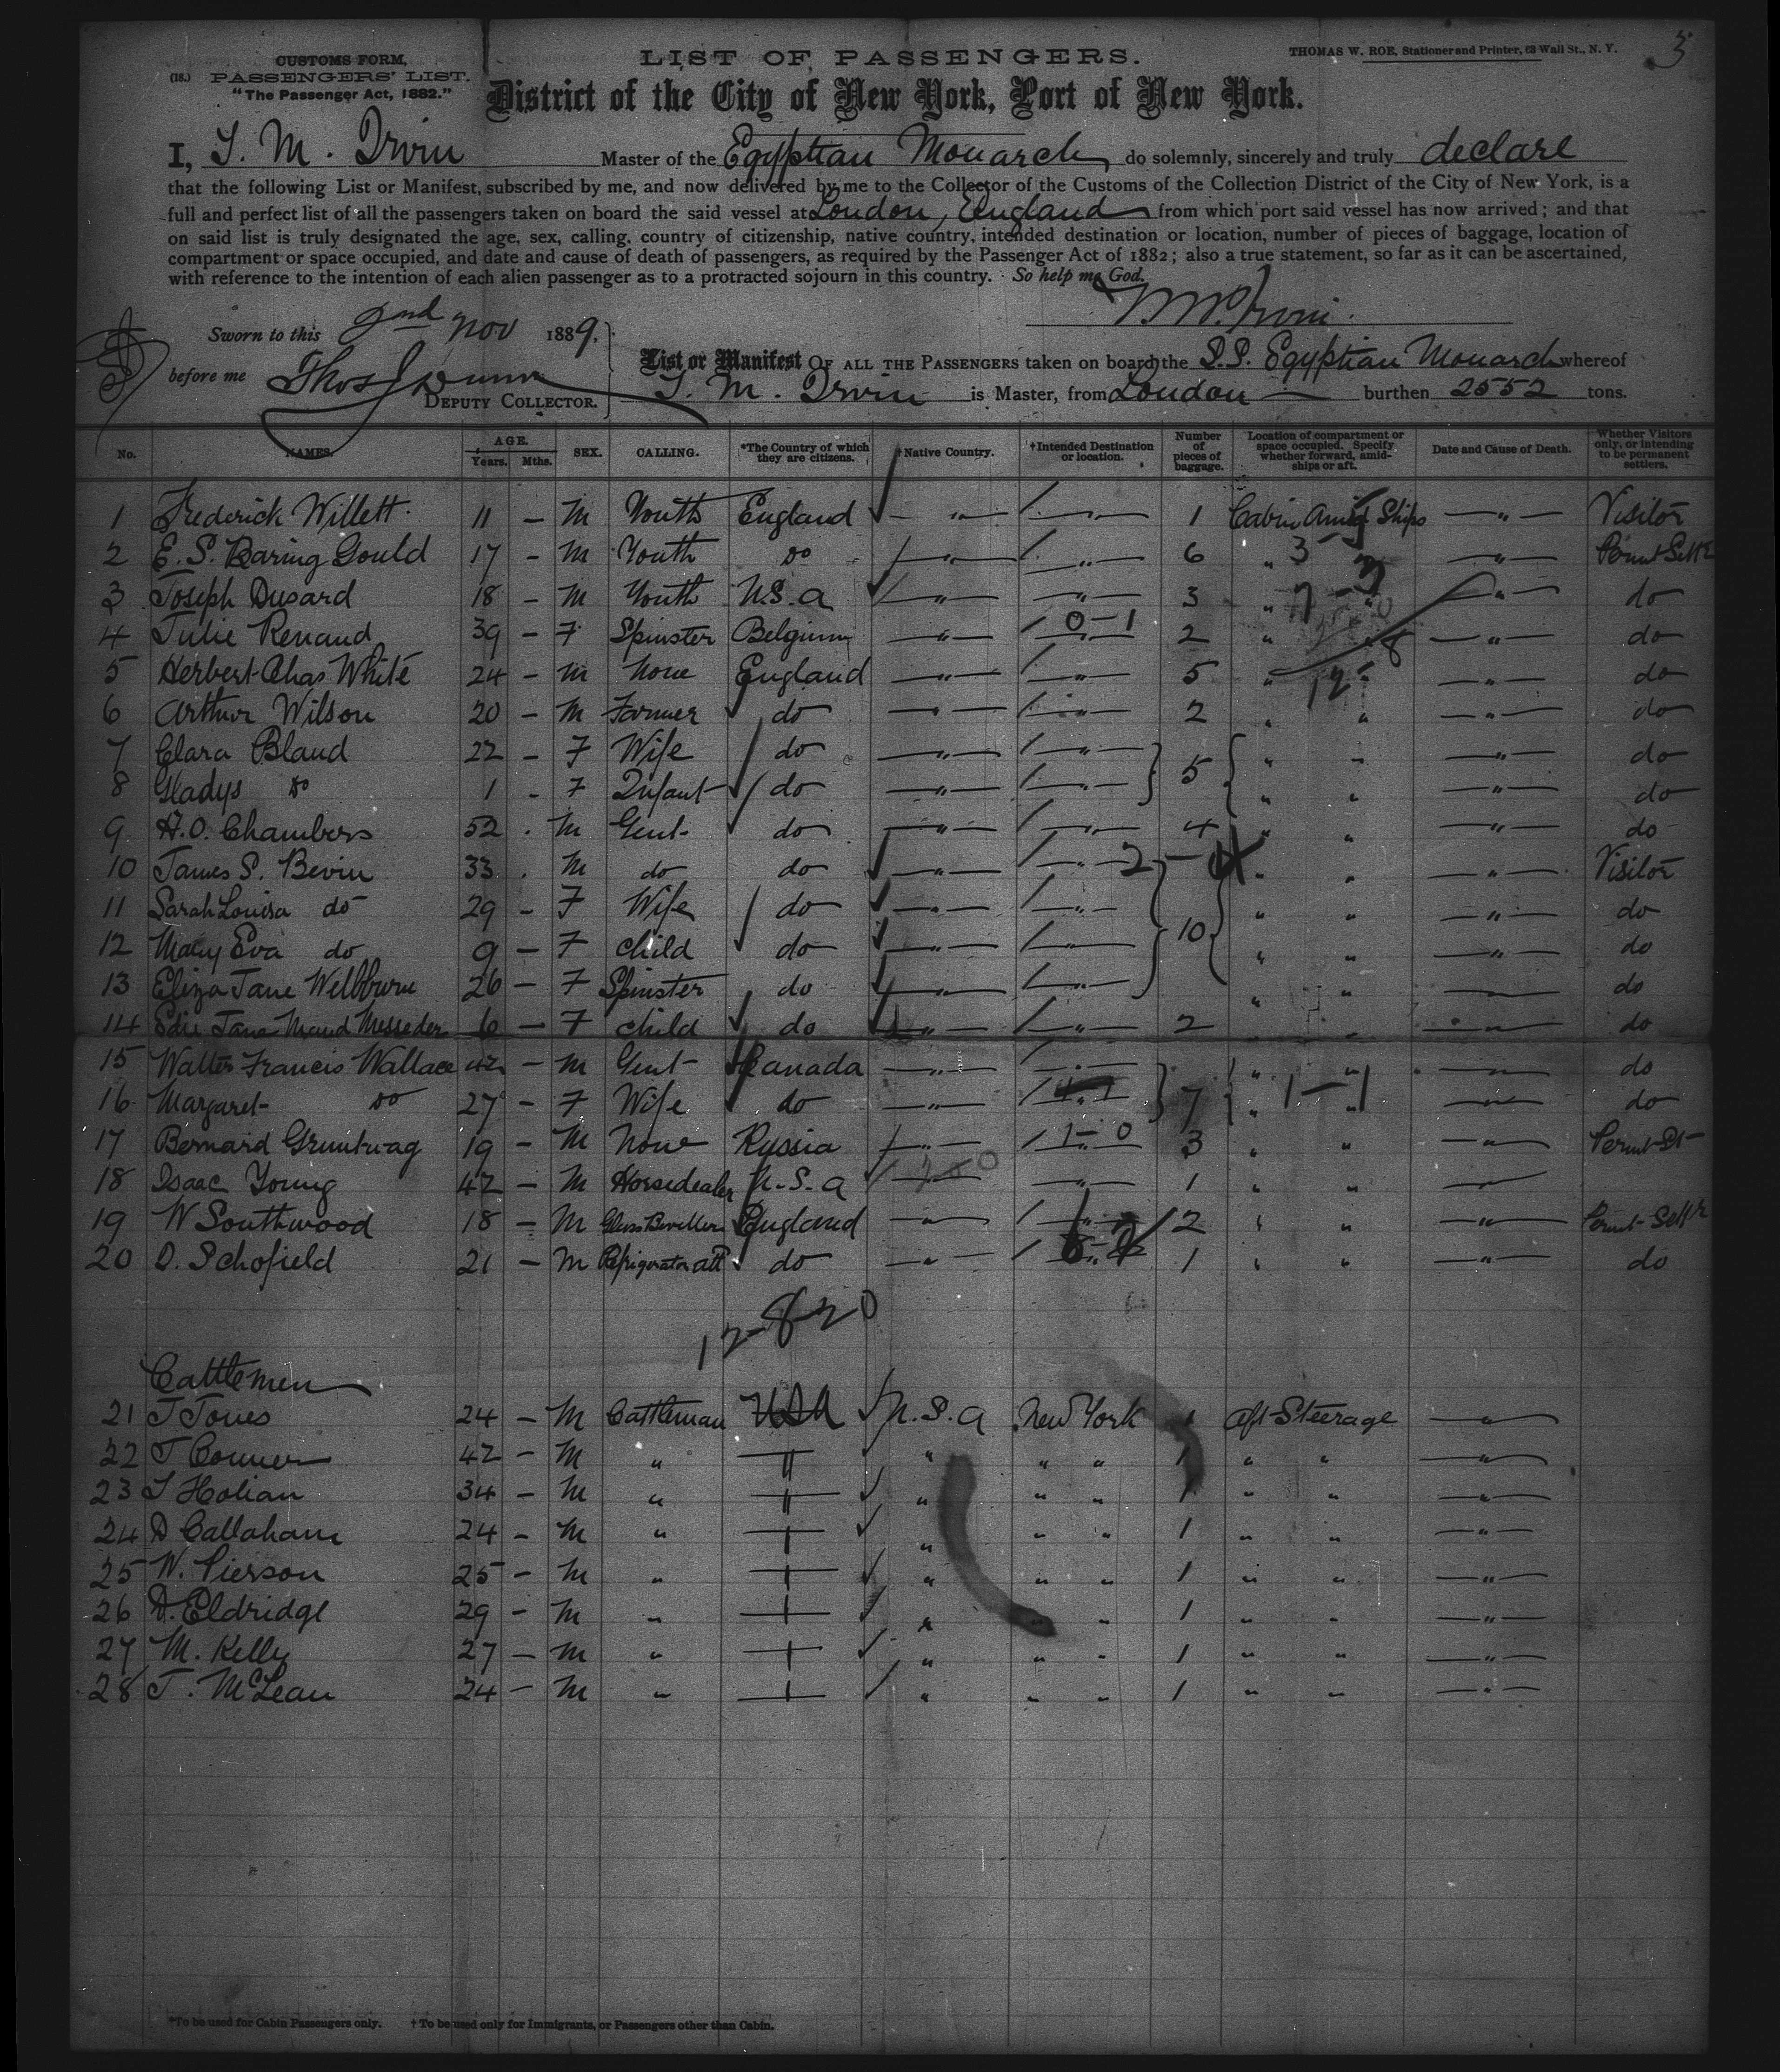 3
CUSTOMS FORM,
(18.) PASSENGERS' LIST.
"The Passenger Act, 1882."
LIST OF PASSENGERS.
THOMAS W. ROE, Stationer and Printer, 63 Wall St., N. Y.
District of the City of New York, Port of New York.
I, T. M. Irvin Master of the Egyptian Monarch do solemnly, sincerely and truly declare
that the following List or Manifest, subscribed by me, and now delivered by me to the Collector of the Customs of the Collection District of the City of New York, is a
full and perfect list of all the passengers taken on board the said vessel at London, England from which port said vessel has now arrived; and that
on said list is truly designated the age, sex, calling, country of citizenship, native country, intended destination or location, number of pieces of baggage, location of
compartment or space occupied, and date and cause of death of passengers, as required by the Passenger Act of 1882; also a true statement, so far as it can be ascertained,
with reference to the intention of each alien passenger as to a protracted sojourn in this country. So help me God.
Sworn to this 2nd Nov 1889.
before me Thos J Dunn
DEPUTY COLLECTOR.
List or Manifest OF ALL THE PASSENGERS taken on board the S.S. Egyptian Monarch whereof
T. M. Irvin is Master, from London burthen 2552 tons.
No. NAMES. AGE. Years. Mths. SEX. CALLING. *The Country of which they are citizens. †Native Country. †Intended Destination or location. Number of pieces of baggage. Location of compartment or space occupied. Specify whether forward, amidships or aft. Date and Cause of Death. Whether Visitors only, or intending to be permanent settlers.
1 Frederick Willett 11 — M Youth England — " — — " — 1 Cabin Amid Ships — " — Visitor
2 E. S. Baring Gould 17 — M Youth do — " — — " — 6 " 3 — " — Permt Settr
3 Joseph Dusard 18 — M Youth U.S.a — " — — " — 3 " " — " — do
4 Julie Renaud 39 — F Spinster Belgium — " — 0-1 2 " " — " — do
5 Herbert Chas White 24 — M None England — " — — " — 5 " " — " — do
6 Arthur Wilson 20 — M Farmer do — " — — " — 2 " " — " — do
7 Clara Bland 22 — F Wife do — " — — " — " " — " — do
8 Gladys do 1 - F Infant do — " — — " — 5 " " — " — do
9 H. O. Chambers 52 . M Gent do — " — — " — 4 " " — " — do
10 James S. Bevin 33 . M do do — " — — " — " " — " — Visitor
11 Sarah Louisa do 29 — F Wife do — " — — " — " " — " — do
12 Mary Eva do 9 — F child do — " — — " — 10 " " — " — do
13 Eliza Jane Wellburn 26 — F Spinster do — " — — " — " " — " — do
14 Edie Jane Maud Messeder 6 — F child do — " — — " — 2 " " — " — do
15 Walter Francis Wallace 42 — M Gent Canada — " — — " — " " — " — do
16 Margaret do 27 — F Wife do — " — — " — 7 " 1-1 " — " — do
17 Bernard Gruntwag 19 — M None Russia — " — 1-0 3 " " — " — Permt St
18 Isaac Young 42 — M Horsedealer U.S.a — " — 1 " " — " —
19 W Southwood 18 — M Glass Beveller England — " — — " — 2 " " — " — Permt Settr
20 D. Schofield 21 — M Refrigerator att do — " — — " — 1 " " — " — do
12-8-20
Cattlemen
21 J Jones 24 — M Cattleman USA U.S.a New York 1 aft Steerage — " —
22 J Conner 42 — M " " " " " 1 " " — " —
23 J Holian 34 — M " " " " " 1 " " — " —
24 D Callaham 24 — M " " " " 1 " " — " —
25 W. Pierson 25 — M " " " " 1 " " — " —
26 D. Eldridge 29 — M " " " " 1 " " — " —
27 M. Kelly 27 — M " " " " 1 " " — " —
28 J. McLean 24 — M " " " " 1 " " — " —
*To be used for Cabin Passengers only. †To be used only for Immigrants, or Passengers other than Cabin.